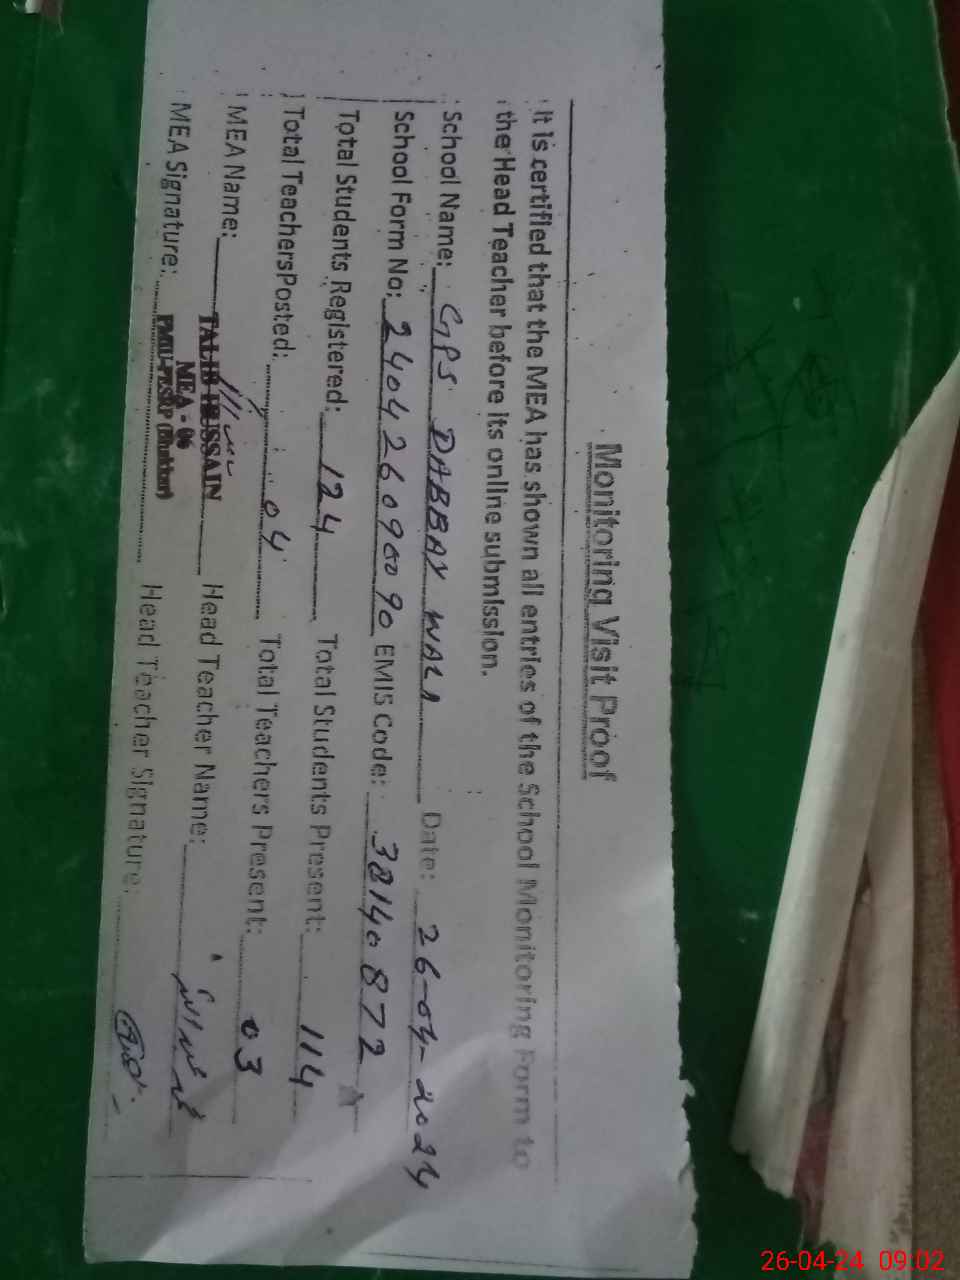 Monitoring Visit Proof
It is certified that the MEA has shown all entries of the School Monitoring Form to
the Head Teacher before its online submission.
School Name: GPS DABBAY WALA Date: 26-04-2024
School Form No: 2404260900 90 EMIS Code: 38140872
Total Students Registered: 124 Total Students Present: 114
Total TeachersPosted: 04 Total Teachers Present: 03
MEA Name: TALIB HUSSAIN Head Teacher Name:
MEA - 06
MEA Signature: Head Teacher Signature:
26-04-24 09:02